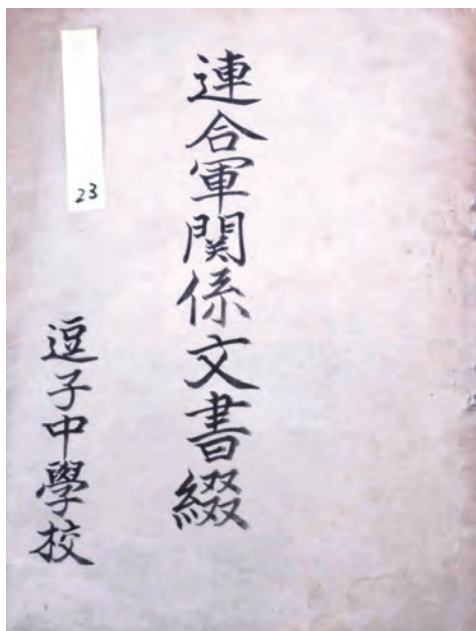 連合軍関係文書綴
逗子中學校
23